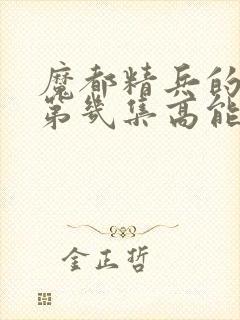 魔都精兵的
第几集高能
金正哲